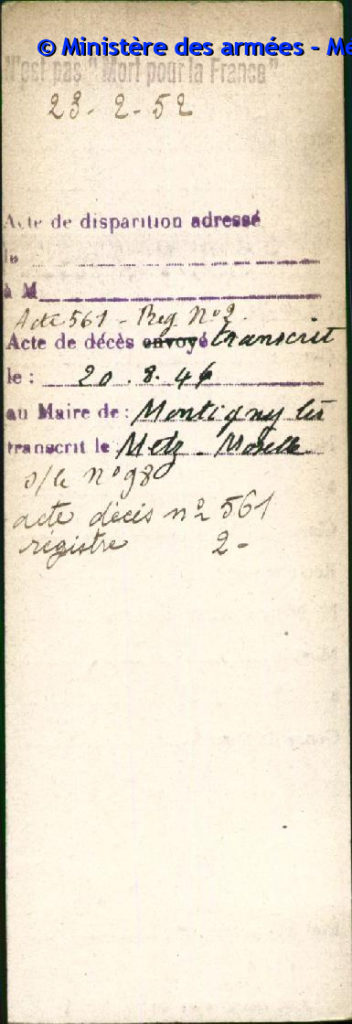 © Ministère des armées - Mé
N'est pas "Mort pour la France"
23-2-52
Acte de disparition adressé
le
à M
Acte 561 - Reg Nº 2.
Acte de décès envoyé transcrit
le : 20.8.46
au Maire de : Montigny les
transcrit le Metz. Moselle
s/le nº 98
acte décès nº 561
régistre 2-